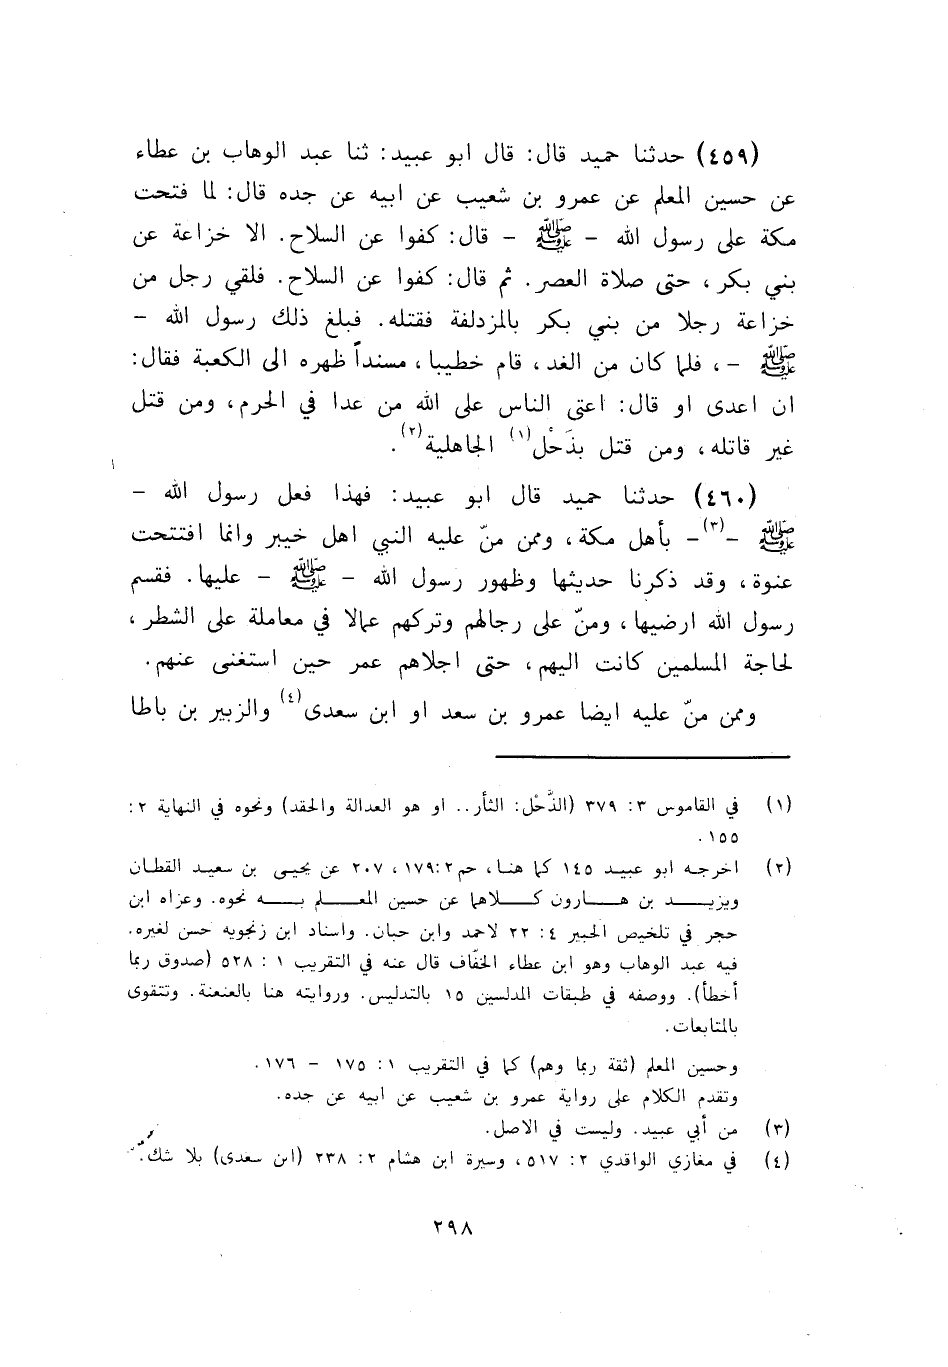 (٤٥٩) حدثنا حميد قال: قال ابو عبيد: ثنا عبد الوهاب بن عطاء
عن حسين المعلم عن عمرو بن شعيب عن ابيه عن جده قال: لما فتحت
مكة على رسول الله – ﷺ – قال: كفوا عن السلاح. الا خزاعة عن
بني بكر، حتى صلاة العصر. ثم قال: كفوا عن السلاح. فلقي رجل من
خزاعة رجلا من بني بكر بالمزدلفة فقتله. فبلغ ذلك رسول الله –
ﷺ –، فلما كان من الغد، قام خطيبا، مسنداً ظهره الى الكعبة فقال:
ان اعدى او قال: اعتى الناس على الله من عدا في الحرم، ومن قتل
غير قاتله، ومن قتل بذَحْل(١) الجاهلية(٢).
(٤٦٠) حدثنا حميد قال ابو عبيد: فهذا فعل رسول الله –
ﷺ –(٣)– بأهل مكة، وممن منّ عليه النبي اهل خيبر وانما افتتحت
عنوة، وقد ذكرنا حديثها وظهور رسول الله – ﷺ – عليها. فقسم
رسول الله ارضيها، ومنّ على رجالهم وتركهم عمالا في معاملة على الشطر،
لحاجة المسلمين كانت اليهم، حتى اجلاهم عمر حين استغنى عنهم.
وممن منّ عليه ايضا عمرو بن سعد او ابن سعدى(٤) والزبير بن باطا
(١) في القاموس ٣: ٣٧٩ (الذَّحْل: الثأر.. او هو العدالة والحقد) ونحوه في النهاية ٢:
١٥٥.
(٢) اخرجه ابو عبيد ١٤٥ كما هنا، حم ٢:١٧٩، ٢٠٧ عن يحيى بن سعيد القطان
ويزيد بن هارون كلاهما عن حسين المعلم به نحوه. وعزاه ابن
حجر في تلخيص الحبير ٤: ٢٢ لاحمد وابن حبان. واسناد ابن زنجويه حسن لغيره.
فيه عبد الوهاب وهو ابن عطاء الخفّاف قال عنه في التقريب ١: ٥٢٨ (صدوق ربما
أخطأ). ووصفه في طبقات المدلسين ١٥ بالتدليس. وروايته هنا بالعنعنة. وتتقوى
بالمتابعات.
وحسين المعلم (ثقة ربما وهم) كما في التقريب ١: ١٧٥ – ١٧٦.
وتقدم الكلام على رواية عمرو بن شعيب عن ابيه عن جده.
(٣) من أبي عبيد. وليست في الاصل.
(٤) في مغازي الواقدي ٢: ٥١٧، وسيرة ابن هشام ٢: ٢٣٨ (ابن سعدى) بلا شك.
٢٩٨